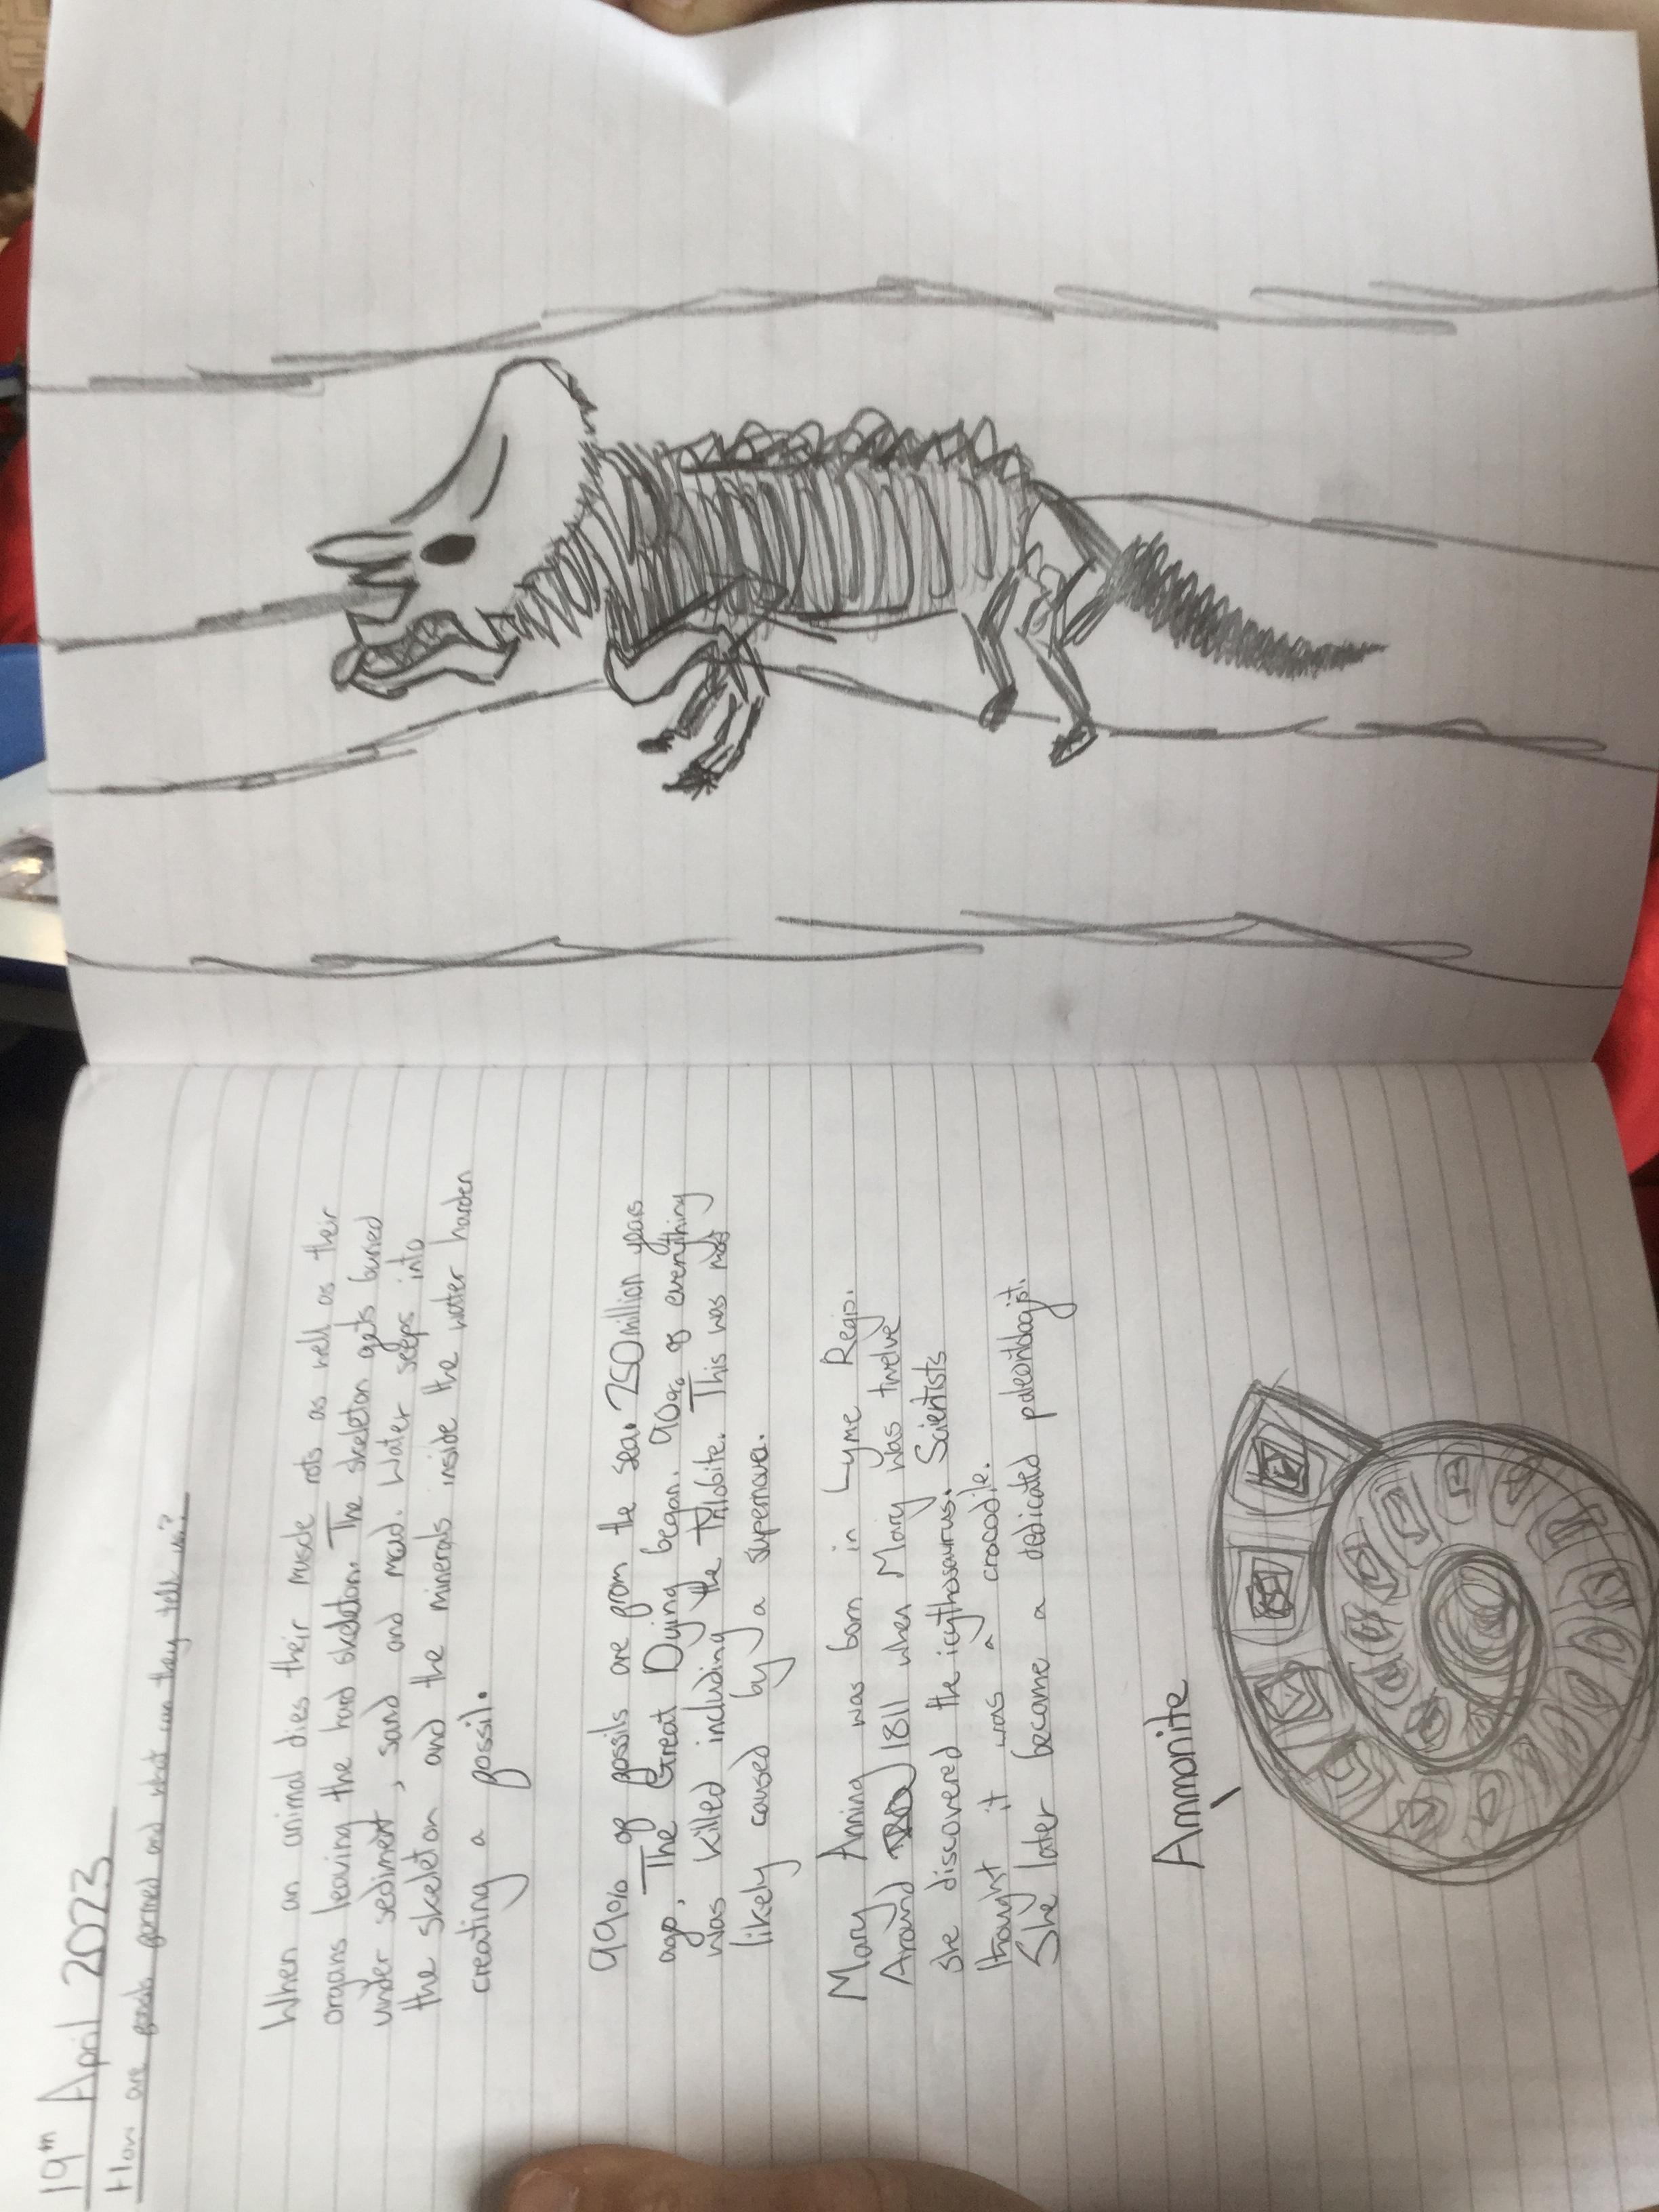 19th April 2023
How are fossils formed and what can they tell us?
When an animal dies their muscle rots as well as their
organs leaving the hard skeleton. The skeleton gets buried
under sediment, sand and mud. Water seeps into
the skeleton and the minerals inside the water harden
creating a fossil.
99% of fossils are from the sea. 250 million years
ago, The Great Dying began. 90% of everything
was killed including the Trilobite. This was most
likely caused by a supernova.
Mary Anning was born in Lyme Regis.
Around 1811 when Mary was twelve
she discovered the icythosaurus. Scientists
thought it was a crocodile.
She later became a dedicated paleontologist.
Ammonite